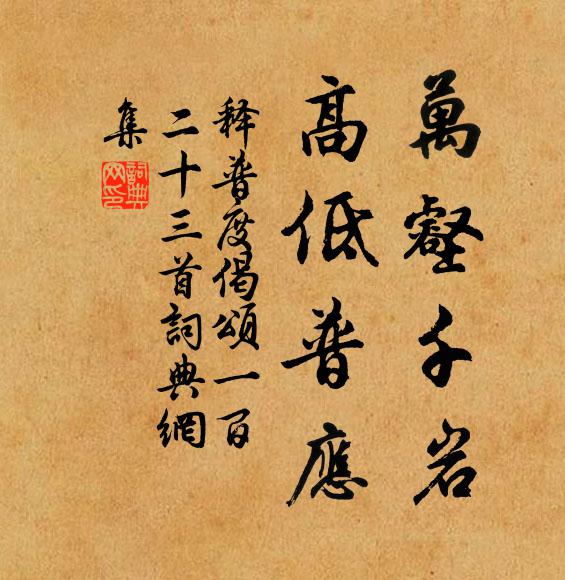 萬壑千岩
高低普應
釋普度偈頌一百
二十三首詞典網
集
詞典网印